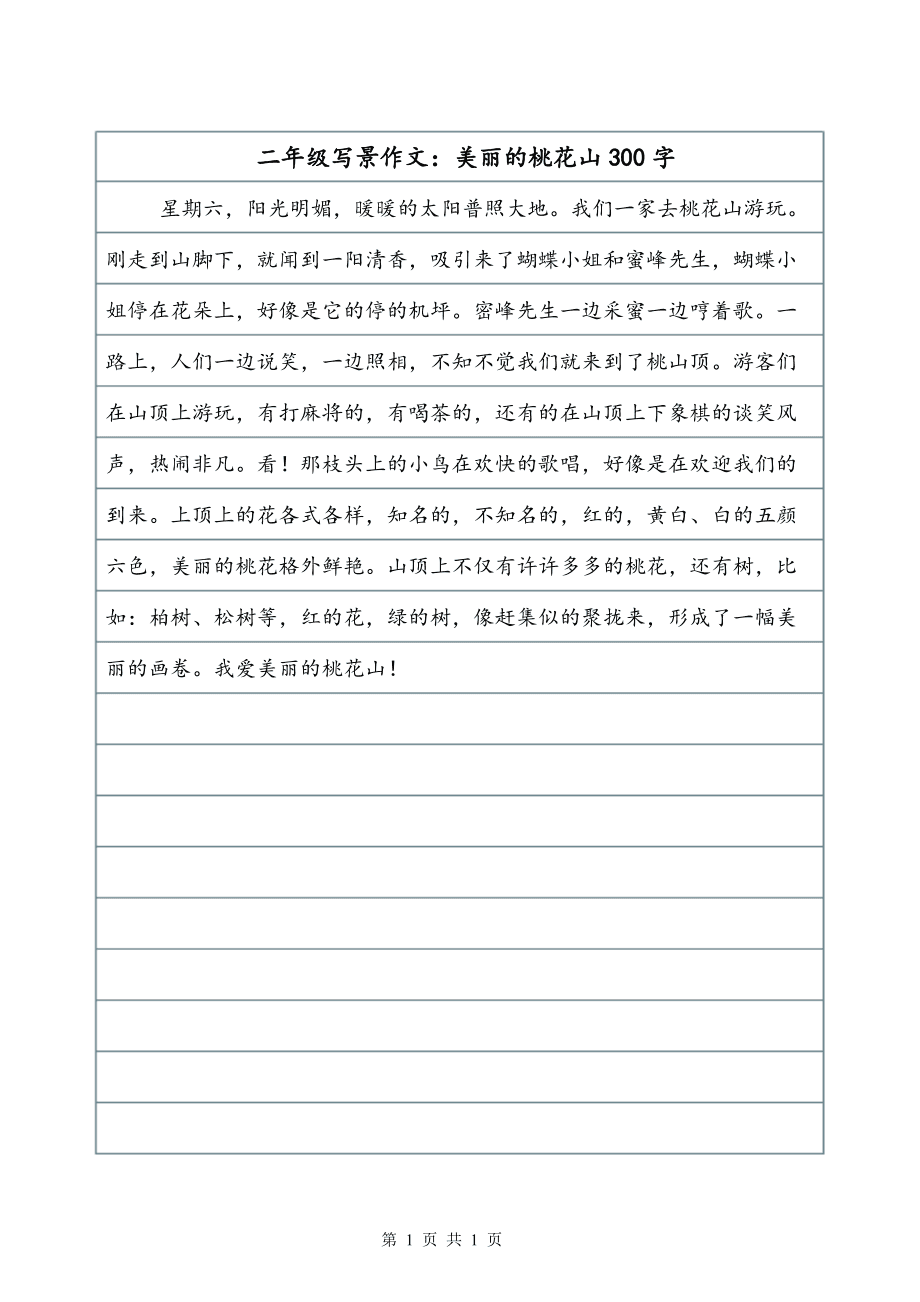 二年级写景作文：美丽的桃花山 300 字
星期六，阳光明媚，暖暖的太阳普照大地。我们一家去桃花山游玩。
刚走到山脚下，就闻到一阳清香，吸引来了蝴蝶小姐和蜜峰先生，蝴蝶小
姐停在花朵上，好像是它的停的机坪。密峰先生一边采蜜一边哼着歌。一
路上，人们一边说笑，一边照相，不知不觉我们就来到了桃山顶。游客们
在山顶上游玩，有打麻将的，有喝茶的，还有的在山顶上下象棋的谈笑风
声，热闹非凡。看！那枝头上的小鸟在欢快的歌唱，好像是在欢迎我们的
到来。上顶上的花各式各样，知名的，不知名的，红的，黄白、白的五颜
六色，美丽的桃花格外鲜艳。山顶上不仅有许许多多的桃花，还有树，比
如：柏树、松树等，红的花，绿的树，像赶集似的聚拢来，形成了一幅美
丽的画卷。我爱美丽的桃花山！
第 1 页 共 1 页